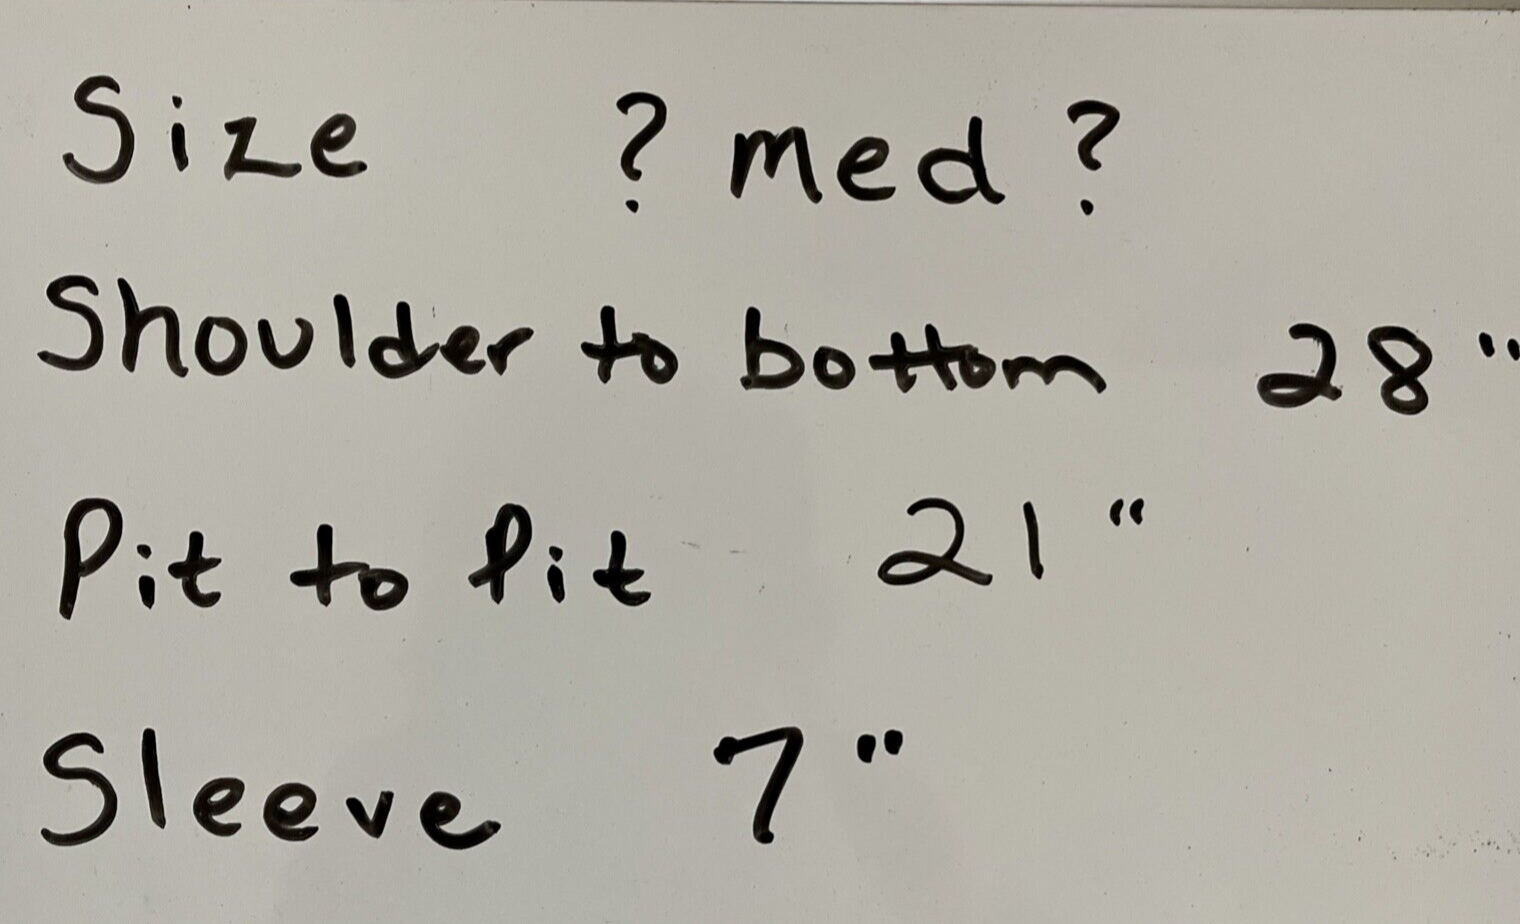 Size ? med ?
Shoulder to bottom 28"
Pit to Pit 21"
Sleeve 7"